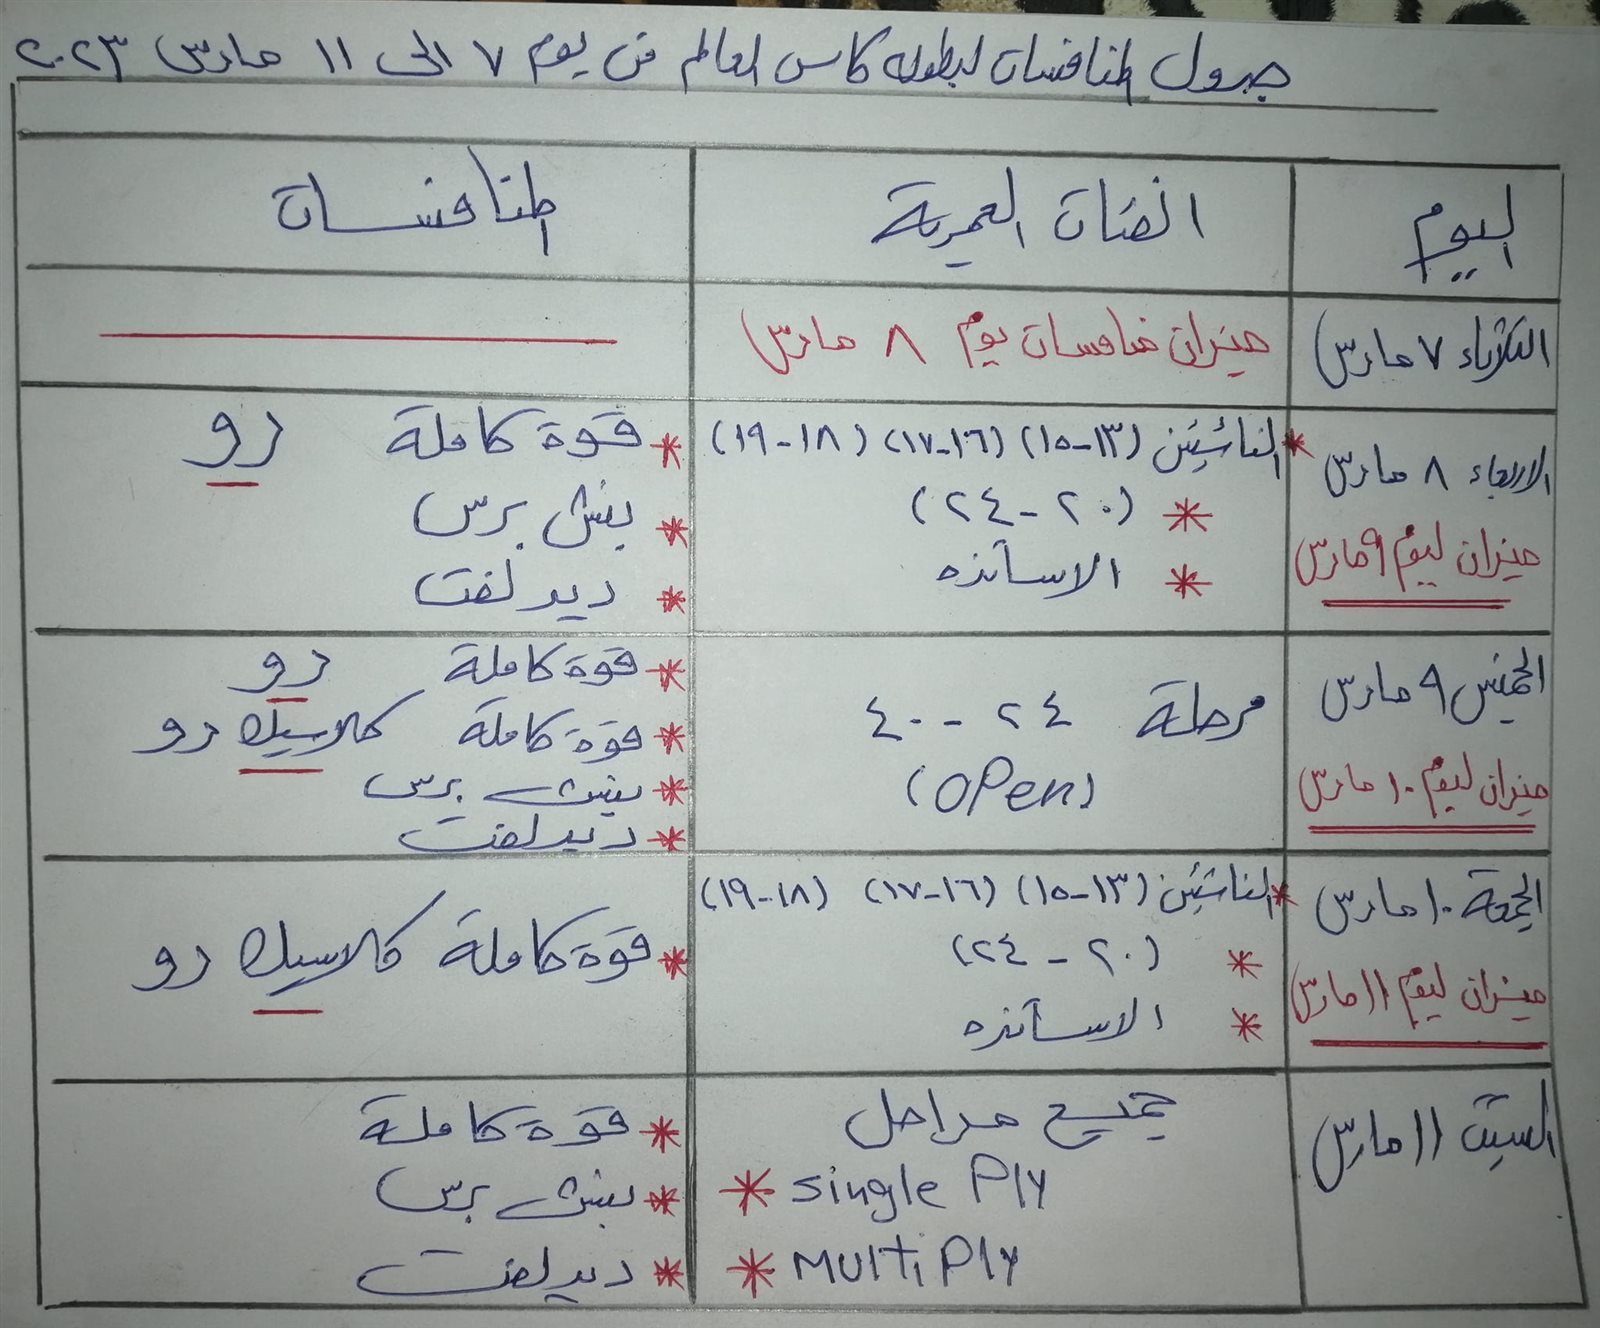 جدول المنافسات لبطوله كاس العالم من يوم ٧ الى ١١ مارس ٢٠٢٣
اليوم
الفئات العمرية
المنافسات
الثلاثاء ٧ مارس
ميزان منافسات يوم ٨ مارس
الاربعاء ٨ مارس
ميزان ليوم ٩ مارس
* الناشئين (١٣-١٥) (١٦-١٧) (١٨-١٩)
* (٢٠-٢٤)
* الاساتذه
* قوة كاملة رو
* بنش برس
* ديد لفت
الخميس ٩ مارس
ميزان ليوم ١٠ مارس
مرحلة ٢٤ - ٤٠
(OPen)
* قوة كاملة رو
* قوة كاملة كلاسيك رو
* بنش برس
* ديد لفت
الجمعة ١٠ مارس
ميزان ليوم ١١ مارس
* الناشئين (١٣-١٥) (١٦-١٧) (١٨-١٩)
* (٢٠-٢٤)
* الاساتذه
* قوة كاملة كلاسيك رو
السبت ١١ مارس
جميع مراحل
* Single Ply
* MULTi Ply
* قوة كاملة
* بنش برس
* ديد لفت